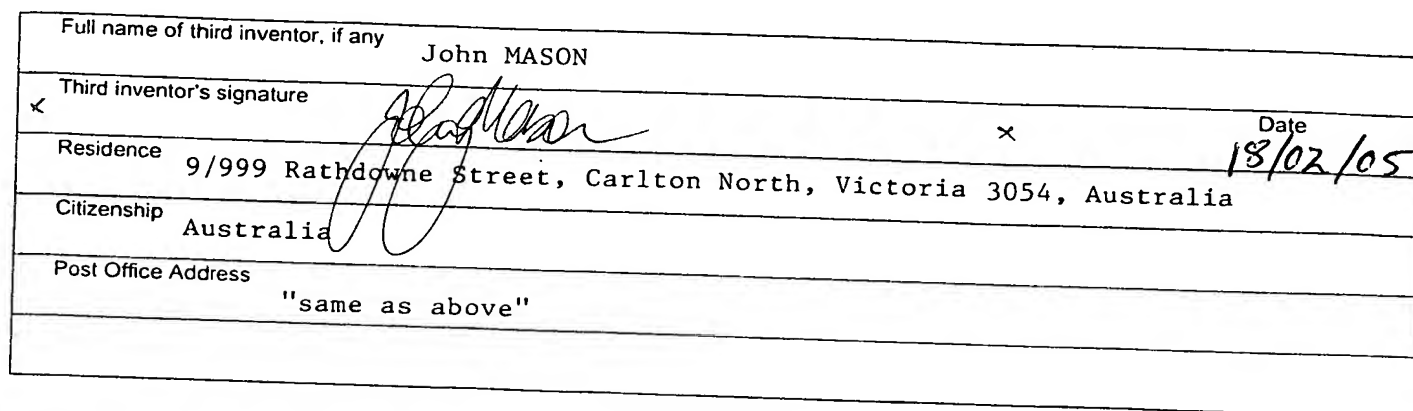 Full name of third inventor, if any John MASON
Third inventor's signature John Mason Date
x x 18/02/05
Residence 9/999 Rathdowne Street, Carlton North, Victoria 3054, Australia
Citizenship Australia
Post Office Address
"same as above"